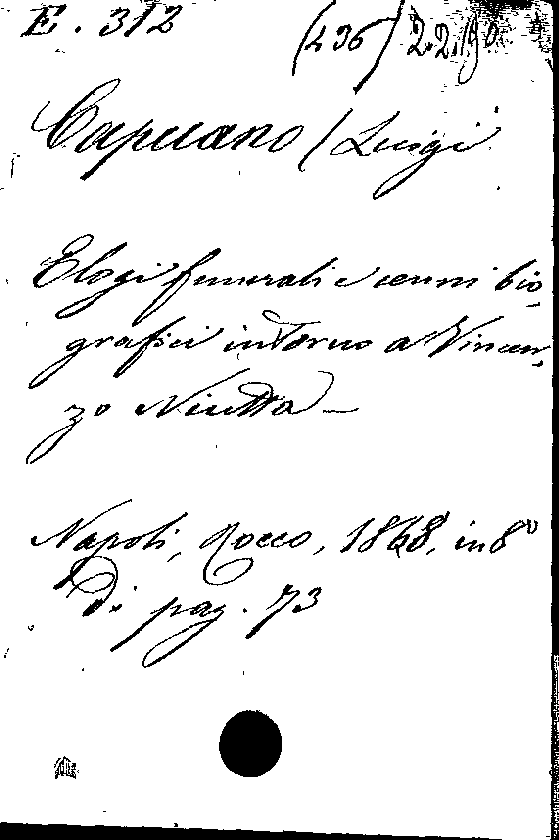 E. 312 (236) 2.2.19
Capuano / Luigi
Elogi funerali e cenni bio-
grafici intorno a Vincen-
zo Nicotta -
Napoli, Rocco, 1868, in 8°
di pag. 73